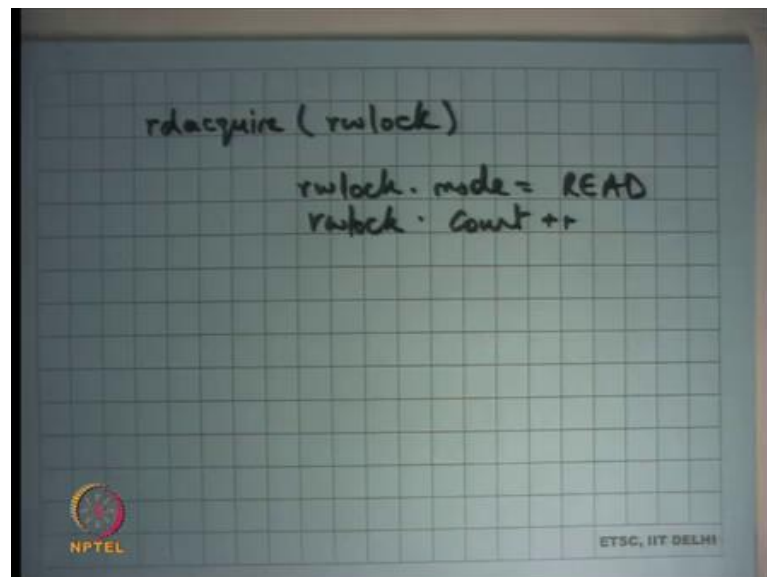 rdacquire (rwlock)
rwlock. mode = READ
rwlock. count ++
NPTEL
ETSC, IIT DELHI